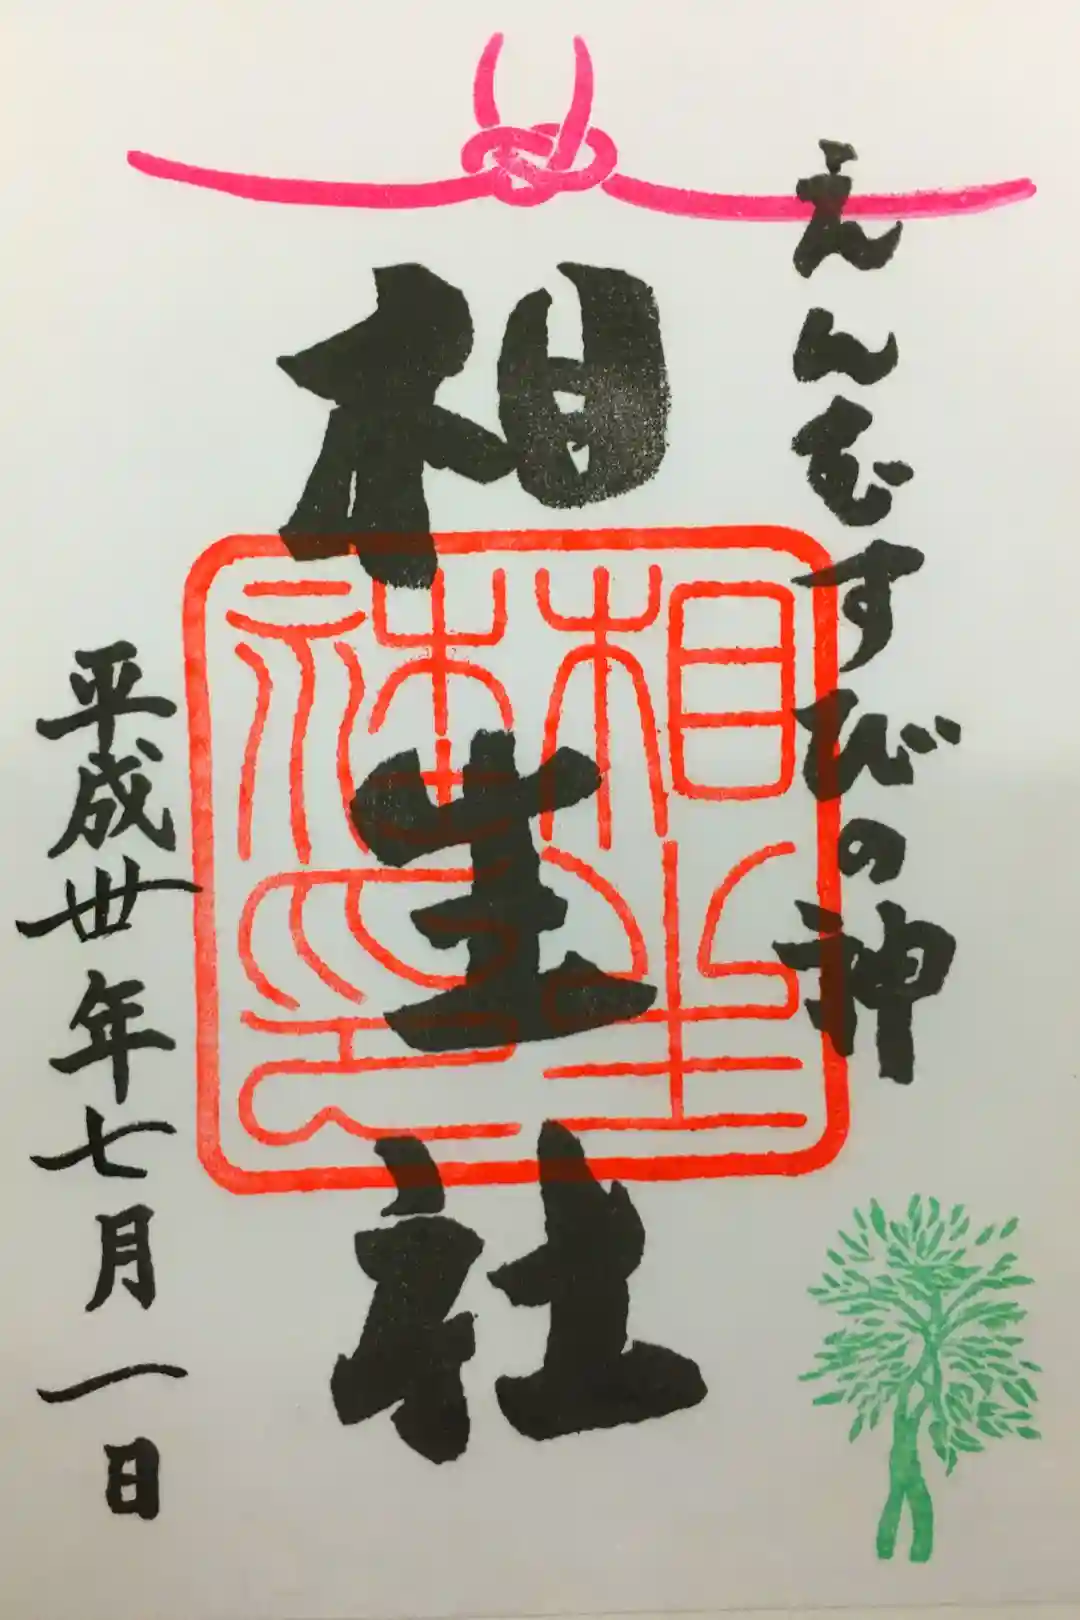 えんむすびの神
相生社
相生
社印
平成卅年七月一日